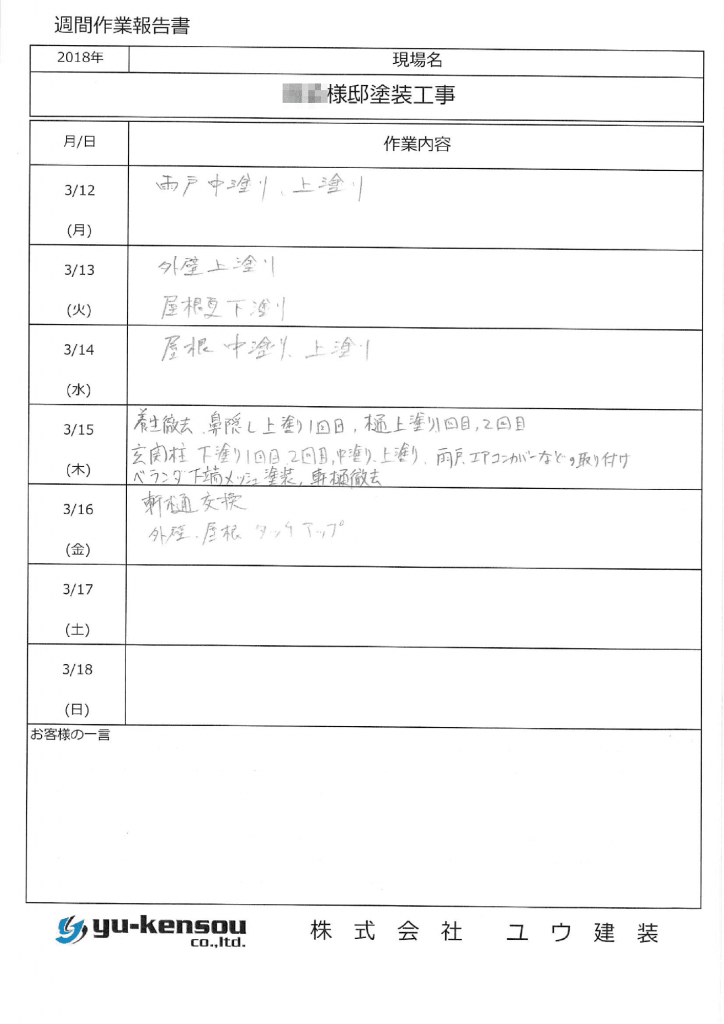 週間作業報告書
2018年 現場名
様邸塗装工事
月/日 作業内容
3/12
(月)
雨戸中塗り、上塗り
3/13
(火)
外壁上塗り
屋根 下塗り
3/14
(水)
屋根 中塗り、上塗り
3/15
(木)
養生撤去、鼻隠し上塗り1回目、樋上塗り1回目,2回目
玄関柱 下塗り1回目 2回目,中塗り、上塗り、雨戸、エアコンカバーなどの取り付け
ベランダ下端メッシュ塗装、軒樋撤去
3/16
(金)
軒樋交換
外壁、屋根 タッチアップ
3/17
(土)
3/18
(日)
お客様の一言
yu-kensou
co.,ltd.
株式会社 ユウ建装